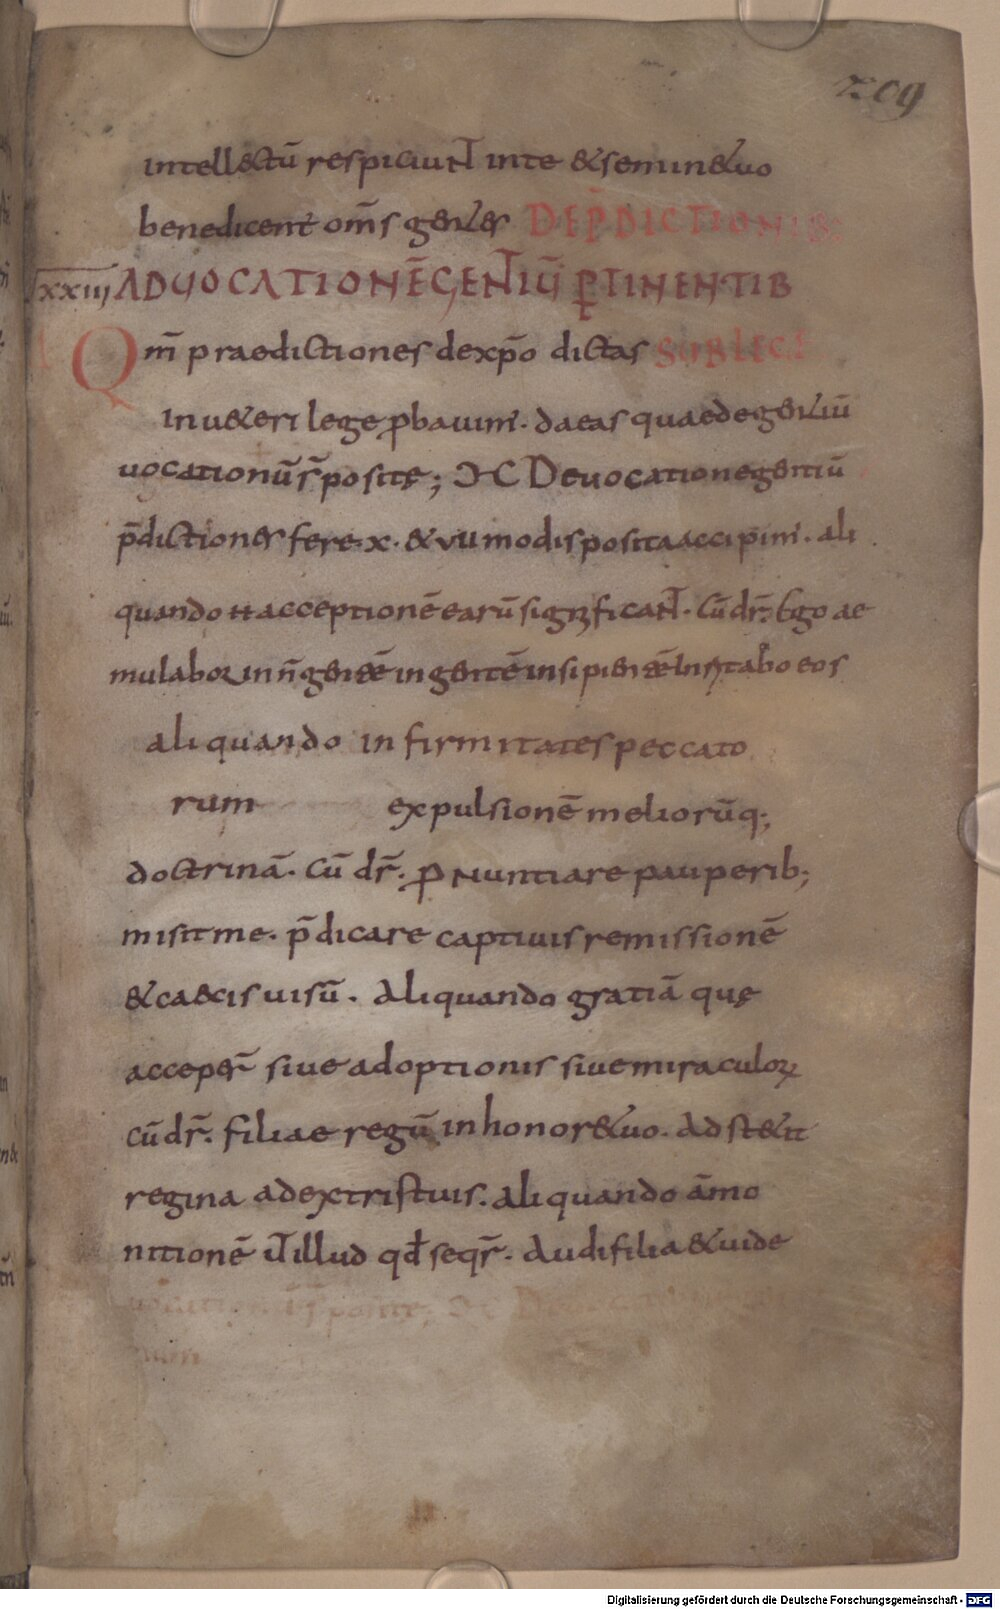 209
intellectū respiciunt in te & semine tuo
benedicent om̄s gentes DE P̄DICTIONIB:
XXIII AD VOCATIONĒ GENTIŪ ꝑTINENTIB
Qm̄ praedictiones de xp̄o dictas SUB LEGE
In u&eri lege ꝓbauim̄. da eas quae de gentiū
uocationū s̄ positę; DC De uocatione gentiū
p̄dictiones fere x. & VII modis posita accipim̄. ali
quando
mulabor in ñ gentē in gentē insipientē Inritabo eos
aliquando infirmitates peccato
rum expulsionē meliorūq;
doctrinā. Cū dr̄. ꝓ Nuntiare pauperib;
misit me. p̄dicare captiuis remissionē
& caecis uisū. Aliquando gratiā quę
acceper̄ siue adoptionis siue miraculoꝝ
cū dr̄. filiae regū in honore tuo. Adstetit
regina a dextris tuis. aliquando āmo
nitionē ut illud qd̄ seqr̄. Audi filia & uide
Digitalisierung gefördert durch die Deutsche Forschungsgemeinschaft - DFG